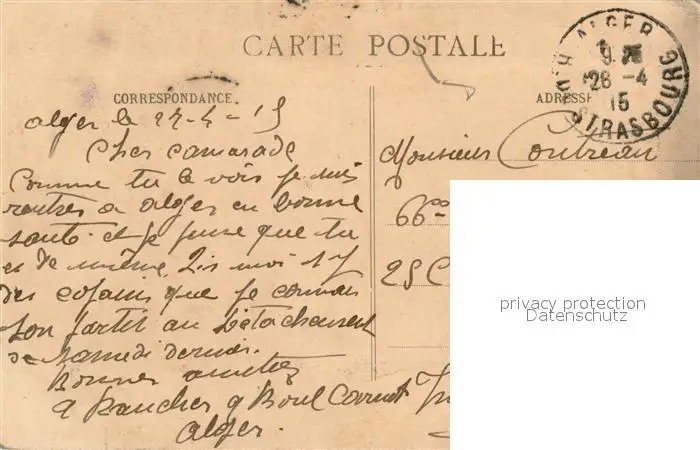 CARTE POSTALE
ALGER
9 25
26 -4
15
STRASBOURG
CORRESPONDANCE
ADRESSE
alger le 24-4-15
Cher camarade
Comme tu le vois je suis
rentrer a alger en bonne
santé et je pense que tu
es de même. Dis moi s'y
des copains que je connais
son partit au Détachement
de samedi dernier.
Bonnes amitiés
9 Boul Carnot
alger.
Monsieur
66
25 C
privacy protection
Datenschutz